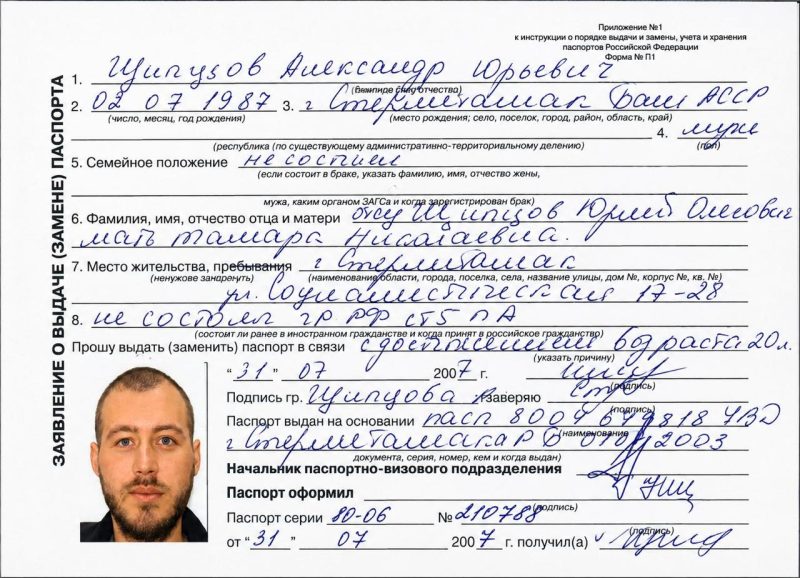 Приложение №1
к инструкции о порядке выдачи и замены, учета и хранения
паспортов Российской Федерации
Форма № П1
ЗАЯВЛЕНИЕ О ВЫДАЧЕ (ЗАМЕНЕ) ПАСПОРТА
1. Щипцов Александр Юрьевич
2. 02 07 1987 3. г Стерлитамак Баш АССР
(число, месяц, год рождения) (место рождения; село, поселок, город, район, область, край)
4. муж
(республика (по существующему административно-территориальному делению) (пол)
5. Семейное положение не состоит
(если состоит в браке, указать фамилию, имя, отчество жены,
мужа, каким органом ЗАГСа и когда зарегистрирован брак)
6. Фамилия, имя, отчество отца и матери отец Щипцов Юрий Олегович
мать Тамара Николаевна.
7. Место жительства, пребывания г Стерлитамак
(ненужное зачеркнуть) (наименование области, города, поселка, села, название улицы, дом №, корпус №, кв. №)
ул. Социалистическая 17-28
8. не состоял гр РФ
(состоял ли ранее в иностранном гражданстве и когда принят в российское гражданство)
Прошу выдать (заменить) паспорт в связи с достижением возраста 20 л.
(указать причину)
"31" 07 2007 г.
(подпись)
Подпись гр. Щипцова заверяю
(подпись)
Паспорт выдан на основании пасп 8004 УВД
(наименование
г Стерлитамака РБ 2003
документа, серия, номер, кем и когда выдан)
Начальник паспортно-визового подразделения
Паспорт оформил
(подпись)
Паспорт серии 80-06 № 210788
(подпись)
от "31" 07 2007 г. получил(а)